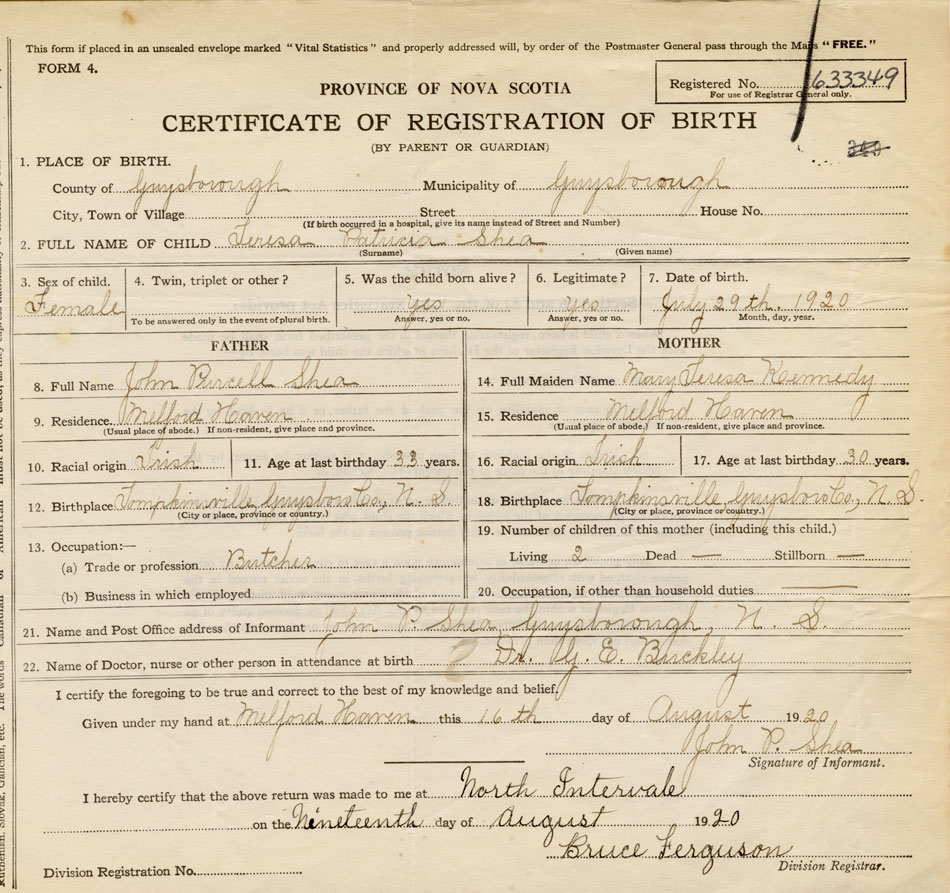 This form if placed in an unsealed envelope marked "Vital Statistics" and properly addressed will, by order of the Postmaster General pass through the Mails "FREE."
FORM 4.
PROVINCE OF NOVA SCOTIA
Registered No. 633349
For use of Registrar General only.
CERTIFICATE OF REGISTRATION OF BIRTH
(BY PARENT OR GUARDIAN)
1. PLACE OF BIRTH.
County of Guysborough Municipality of Guysborough
City, Town or Village Street House No.
(If birth occurred in a hospital, give its name instead of Street and Number)
2. FULL NAME OF CHILD Teresa Patricia Shea
(Surname) (Given name)
3. Sex of child. 4. Twin, triplet or other? 5. Was the child born alive? 6. Legitimate? 7. Date of birth.
Female Yes Yes July 29th. 1920
To be answered only in the event of plural birth. Answer, yes or no. Answer, yes or no. Month, day, year.
FATHER
8. Full Name John Purcell Shea
9. Residence. Melford Haven
(Usual place of abode.) If non-resident, give place and province.
10. Racial origin Irish 11. Age at last birthday 33 years.
12. Birthplace Tompkinsville Guysboro Co., N. S
(City or place, province or country.)
13. Occupation:—
(a) Trade or profession Butcher
(b) Business in which employed
MOTHER
14. Full Maiden Name Mary Teresa Kennedy
15. Residence Melford Haven
(Usual place of abode.) If non-resident, give place and province.
16. Racial origin Irish 17. Age at last birthday 30 years.
18. Birthplace Tompkinsville Guysboro Co., N. S.
(City or place, province or country.)
19. Number of children of this mother (including this child.)
Living 2 Dead — Stillborn —
20. Occupation, if other than household duties —
21. Name and Post Office address of Informant John P. Shea Guysborough, N. S.
22. Name of Doctor, nurse or other person in attendance at birth Dr. G. E. Buckley
I certify the foregoing to be true and correct to the best of my knowledge and belief.
Given under my hand at Melford Haven this 16 th day of August 1920
John P. Shea
Signature of Informant.
I hereby certify that the above return was made to me at North Intervale
on the Nineteenth day of August 1920
Bruce Ferguson
Division Registration No. Division Registrar.